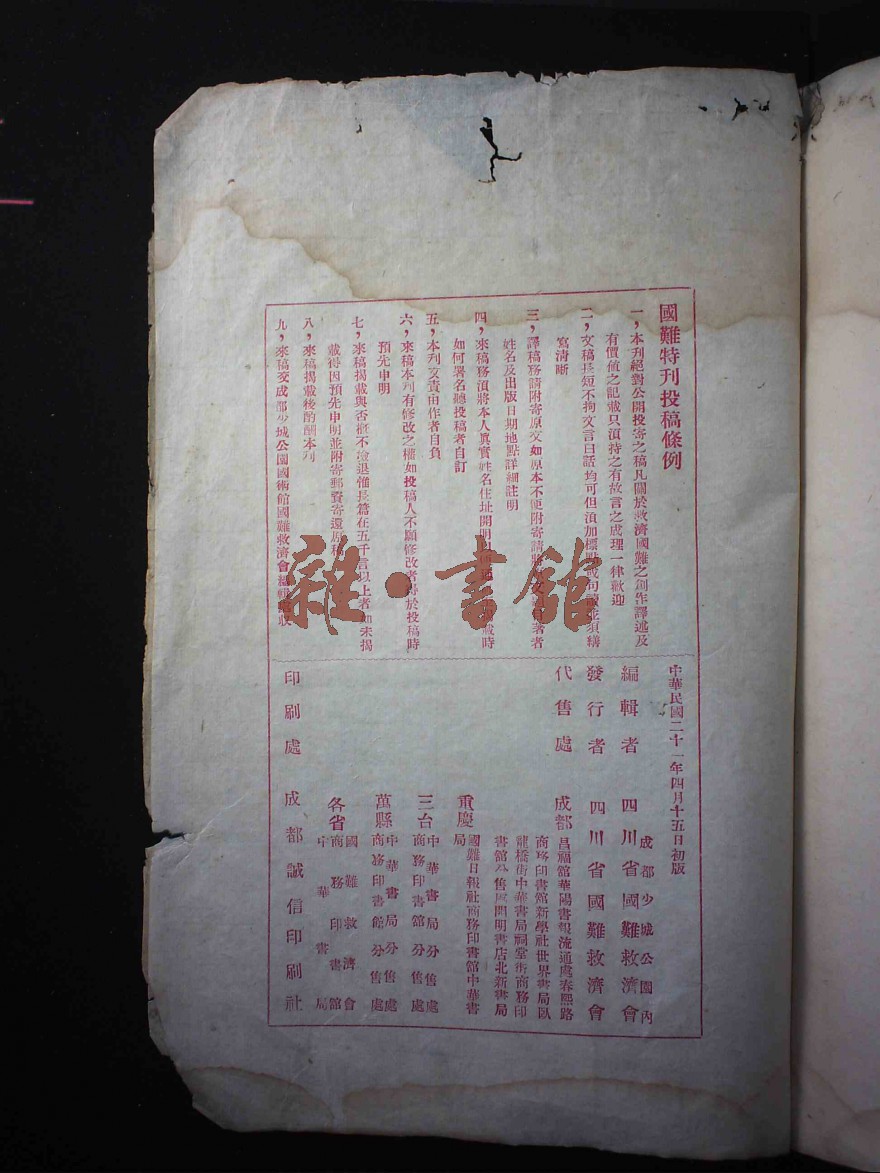 國難特刊投稿條例
一，本刊絕對公開投寄之稿凡關於救濟國難之創作譯述及
有價値之記載只須持之有故言之成理一律歡迎
二，文稿長短不拘文言白話均可但須加標點或句讀並須繕
寫清晰
三，譯稿務請附寄原文如原本不便附寄請將原文 著者
姓名及出版日期地點詳細註明
四，來稿務須將本人眞實姓名住址開明 載時
如何署名聽投稿者自訂
五，本刊文責由作者自負
六，來稿本刊有修改之權如投稿人不願修改者 於投稿時
預先申明
七，來稿揭載與否槪不檢退惟長篇在五千言以上者如未揭
載得因預先申明並附寄郵資寄還原稿
八，來稿揭載後酌酬本刊
九，來稿交成都少城公園國術館國難救濟會編輯 收
中華民國二十一年四月十五日初版
成都少城公園內
編輯者 四川省國難救濟會
發行者 四川省國難救濟會
代售處 成都 昌福館華陽書報流通處春熙路
商務印書館新學社世界書局臥
龍橋街中華書局祠堂街商務印
書館分售處開明書店北新書局
重慶 國難日報社商務印書館中華書
局
三台 中華書局分售處
商務印書館分售處
萬縣 中華書局分售處
商務印書館分售處
各省 國難救濟會
商務印書館
中華書局
印刷處 成都誠信印刷社
雜·書館